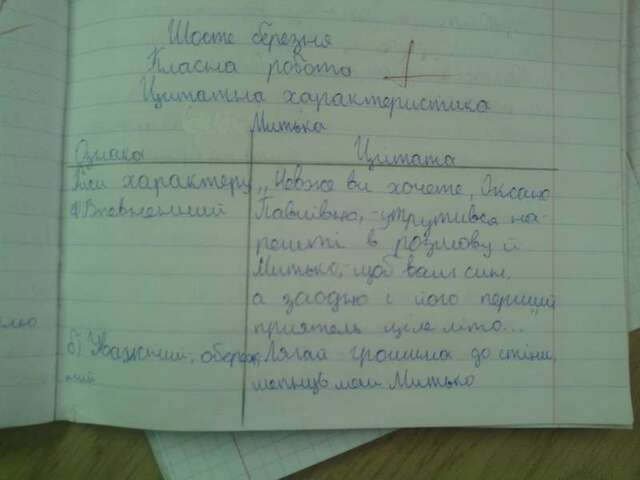 Шосте березня
Класна робота
Цитатна характеристика
Митька
Ознака Цитата
Риси характеру „Невже ви хочете, Оксано
а) Впевнений Павлівно, - утрутився на-
решті в розмову й
Митько, - щоб ваш син,
а заодно і його перший
приятель ціле літо..."
б) Уважний, обереж- Лягай грошима до стіни,
ний шепнув мені Митько